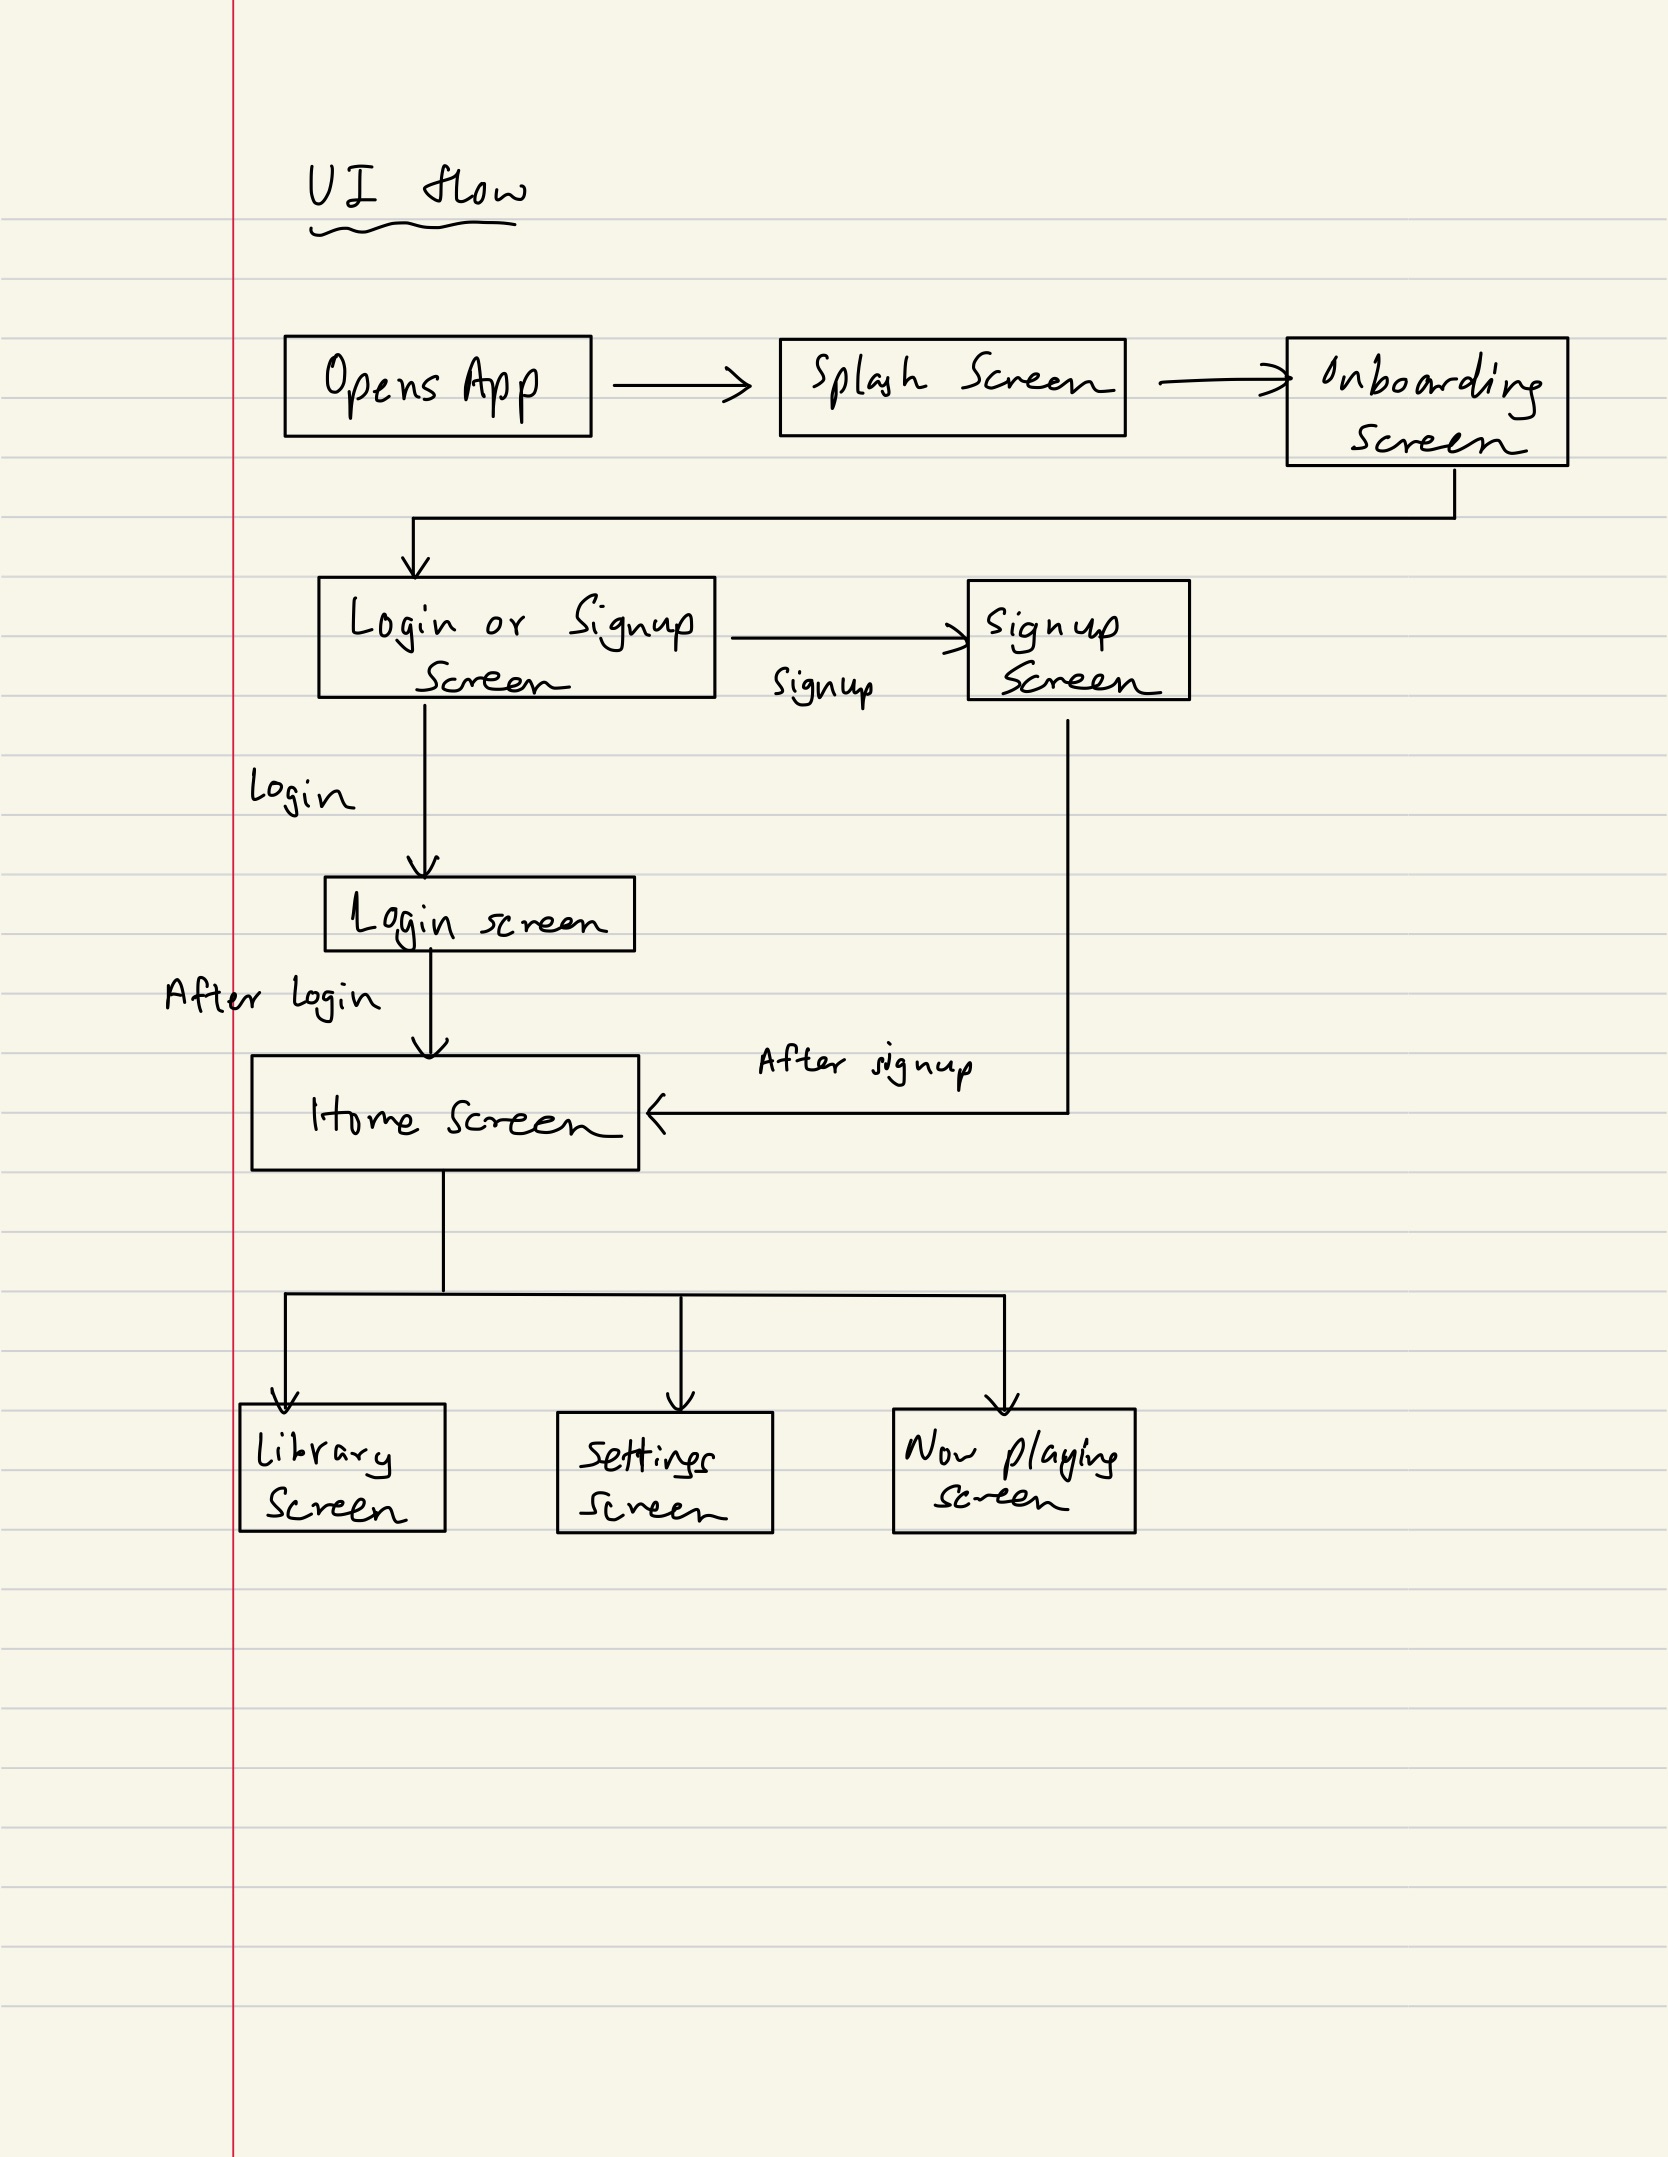 UI flow
Opens App
Splash Screen
Onboarding
Screen
Login or Signup
Screen
Signup
Signup
Screen
Login
Login screen
After Login
After signup
Home Screen
Library
Screen
Settings
Screen
Now playing
screen